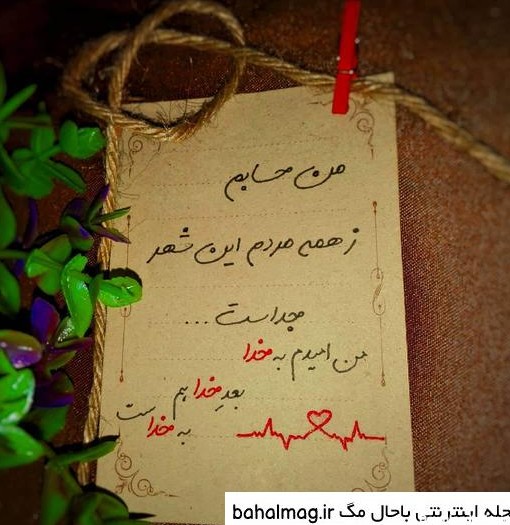 من حسابم
ز همه مردم این شهر
جداست ...
من امیدم به خدا
بعدِ خدا هم
به خداست
جله اینترنتی باحال مگ bahalmag.ir